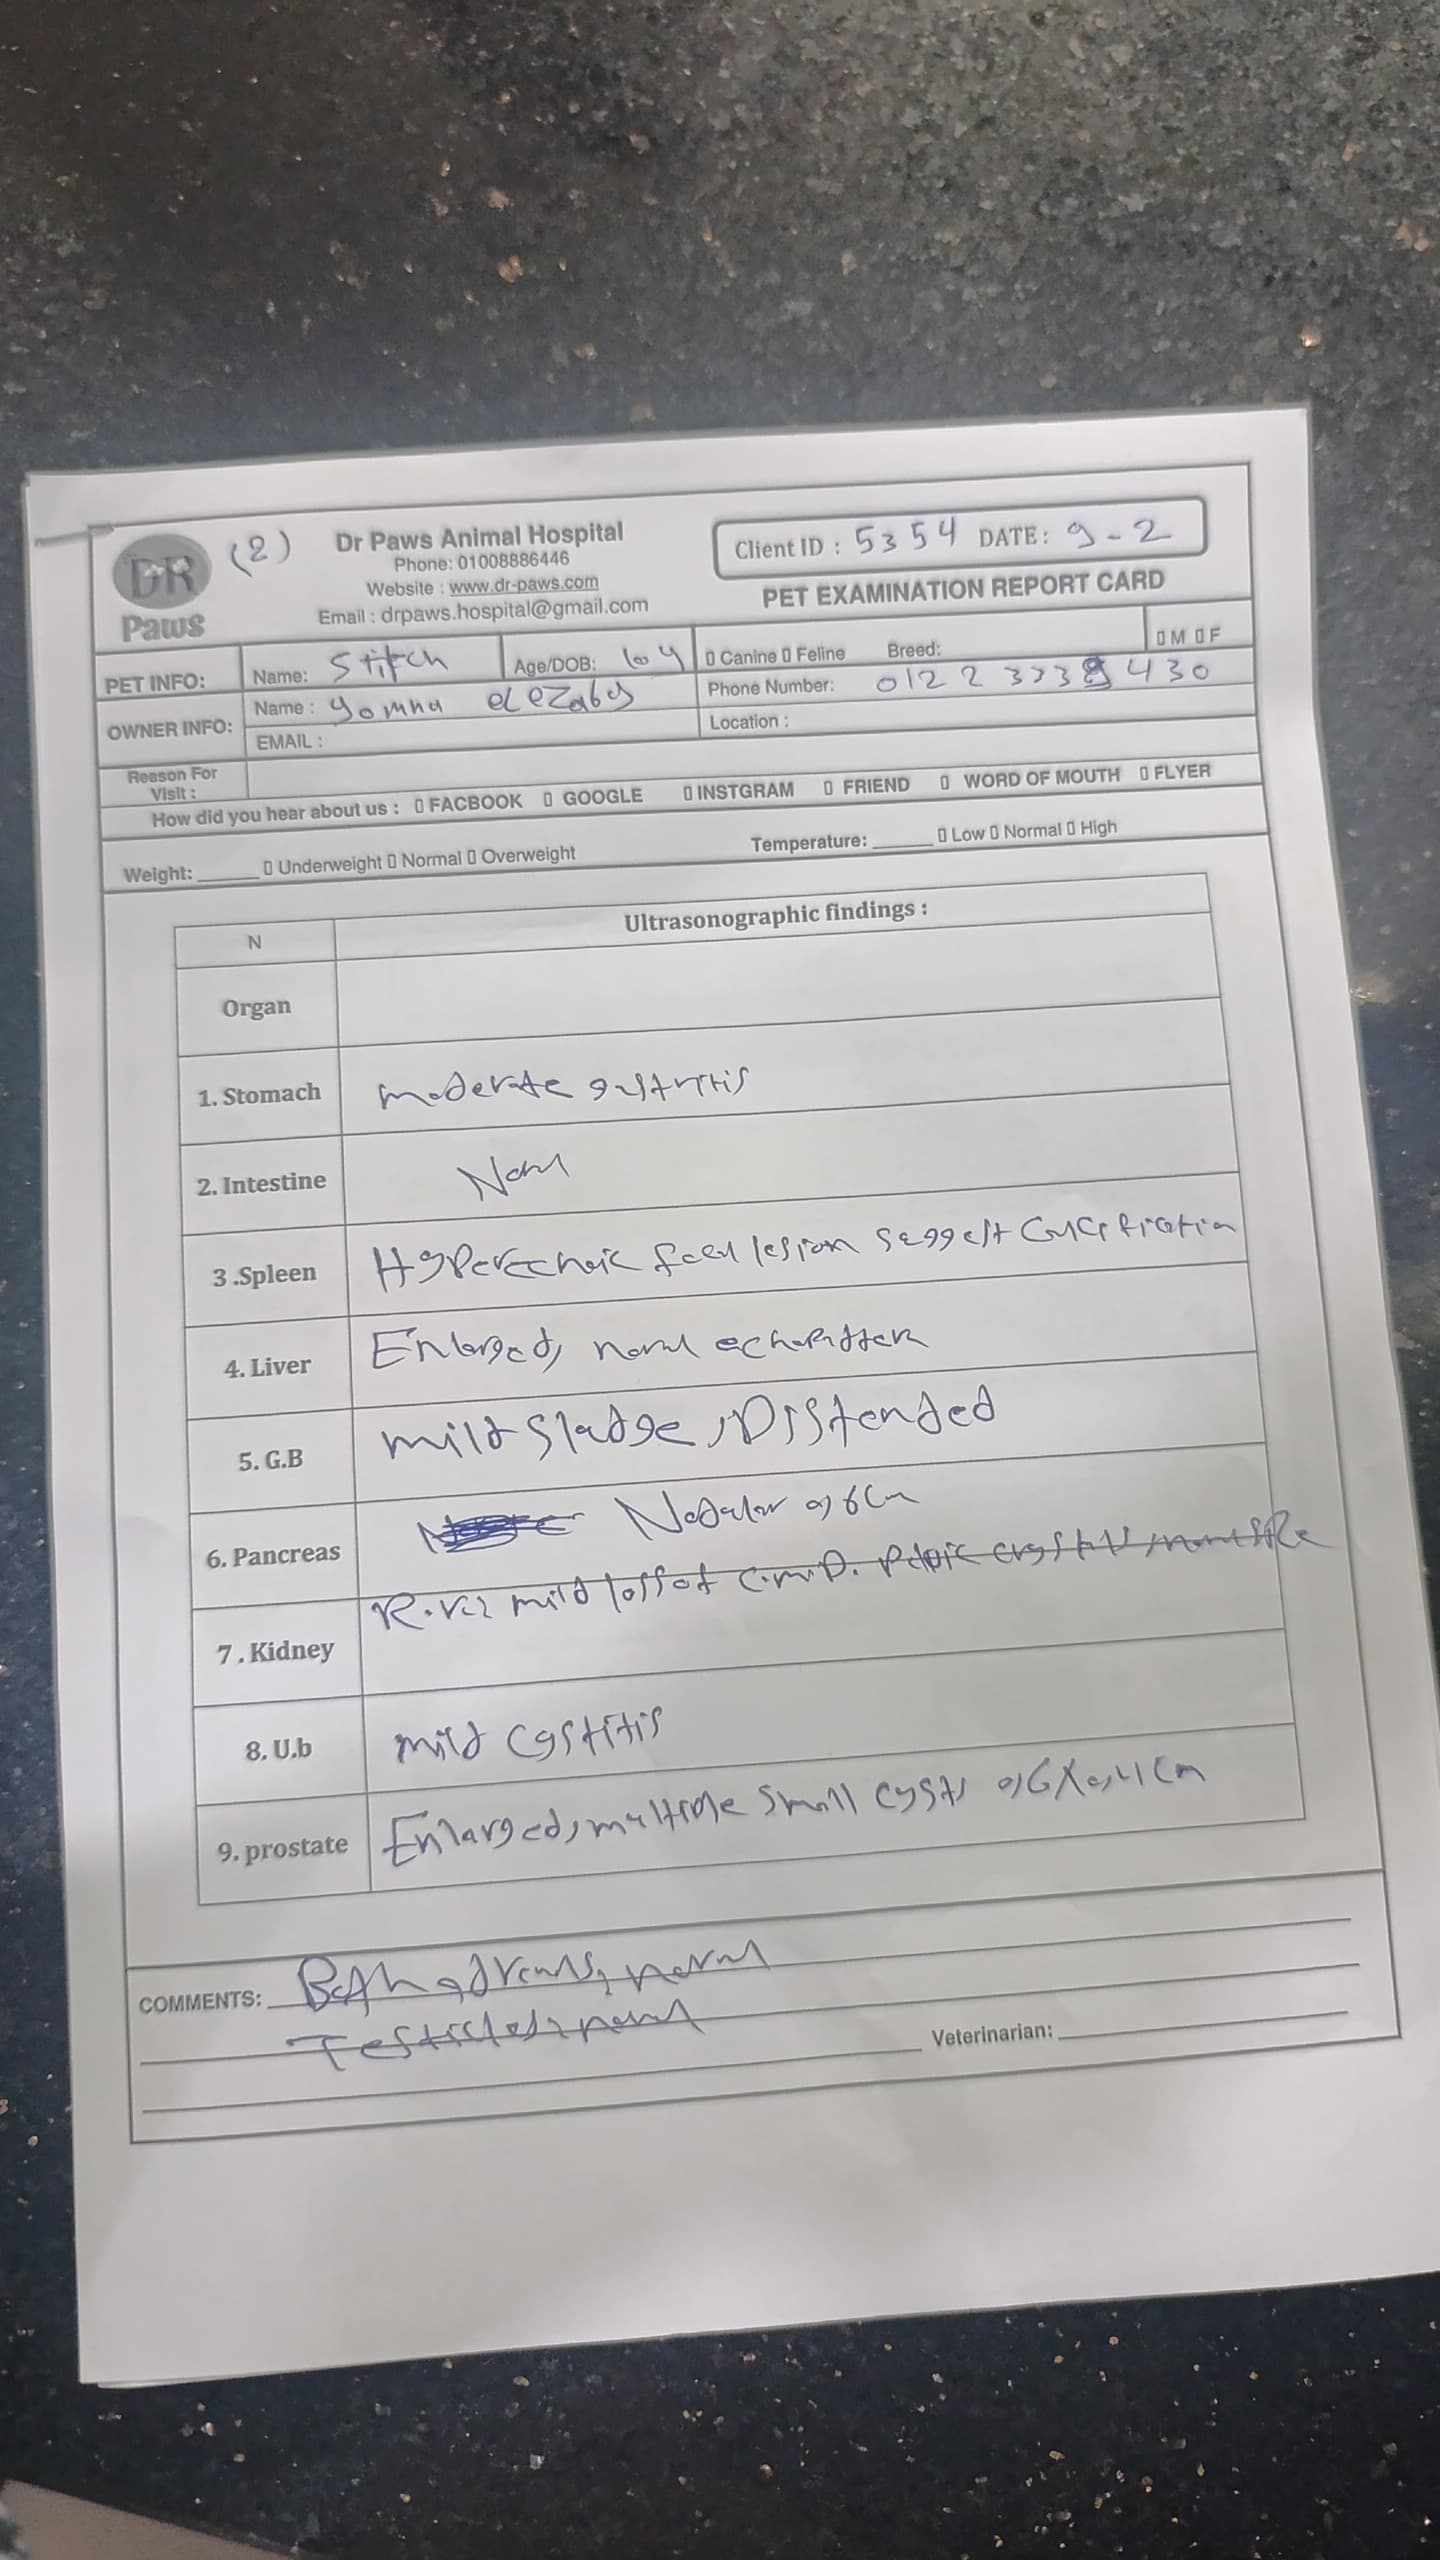 DR
Paws
(2)
Dr Paws Animal Hospital
Phone: 01008886446
Website : www.dr-paws.com
Email : drpaws.hospital@gmail.com
Client ID : 5354 DATE: 9-2
PET EXAMINATION REPORT CARD
PET INFO: Name: Stitch Age/DOB: 10 y Canine Feline Breed: M F
OWNER INFO: Name : Yomna elezaby Phone Number:
EMAIL : Location :
Reason For
Visit :
How did you hear about us : FACBOOK GOOGLE INSTGRAM FRIEND WORD OF MOUTH FLYER
Weight: Underweight Normal Overweight Temperature: Low Normal High
N Ultrasonographic findings :
Organ
1. Stomach moderate gastritis
2. Intestine
3 .Spleen Hyperechoic focal lesion suggest
4. Liver Enlarged,
5. G.B mild sludge, Distended
6. Pancreas
7 . Kidney mild loss of C.M.D.
8. U.b mild cystitis
9. prostate Enlarged, multiple small cysts
COMMENTS: Both adrenals,
Testicles,
Veterinarian: